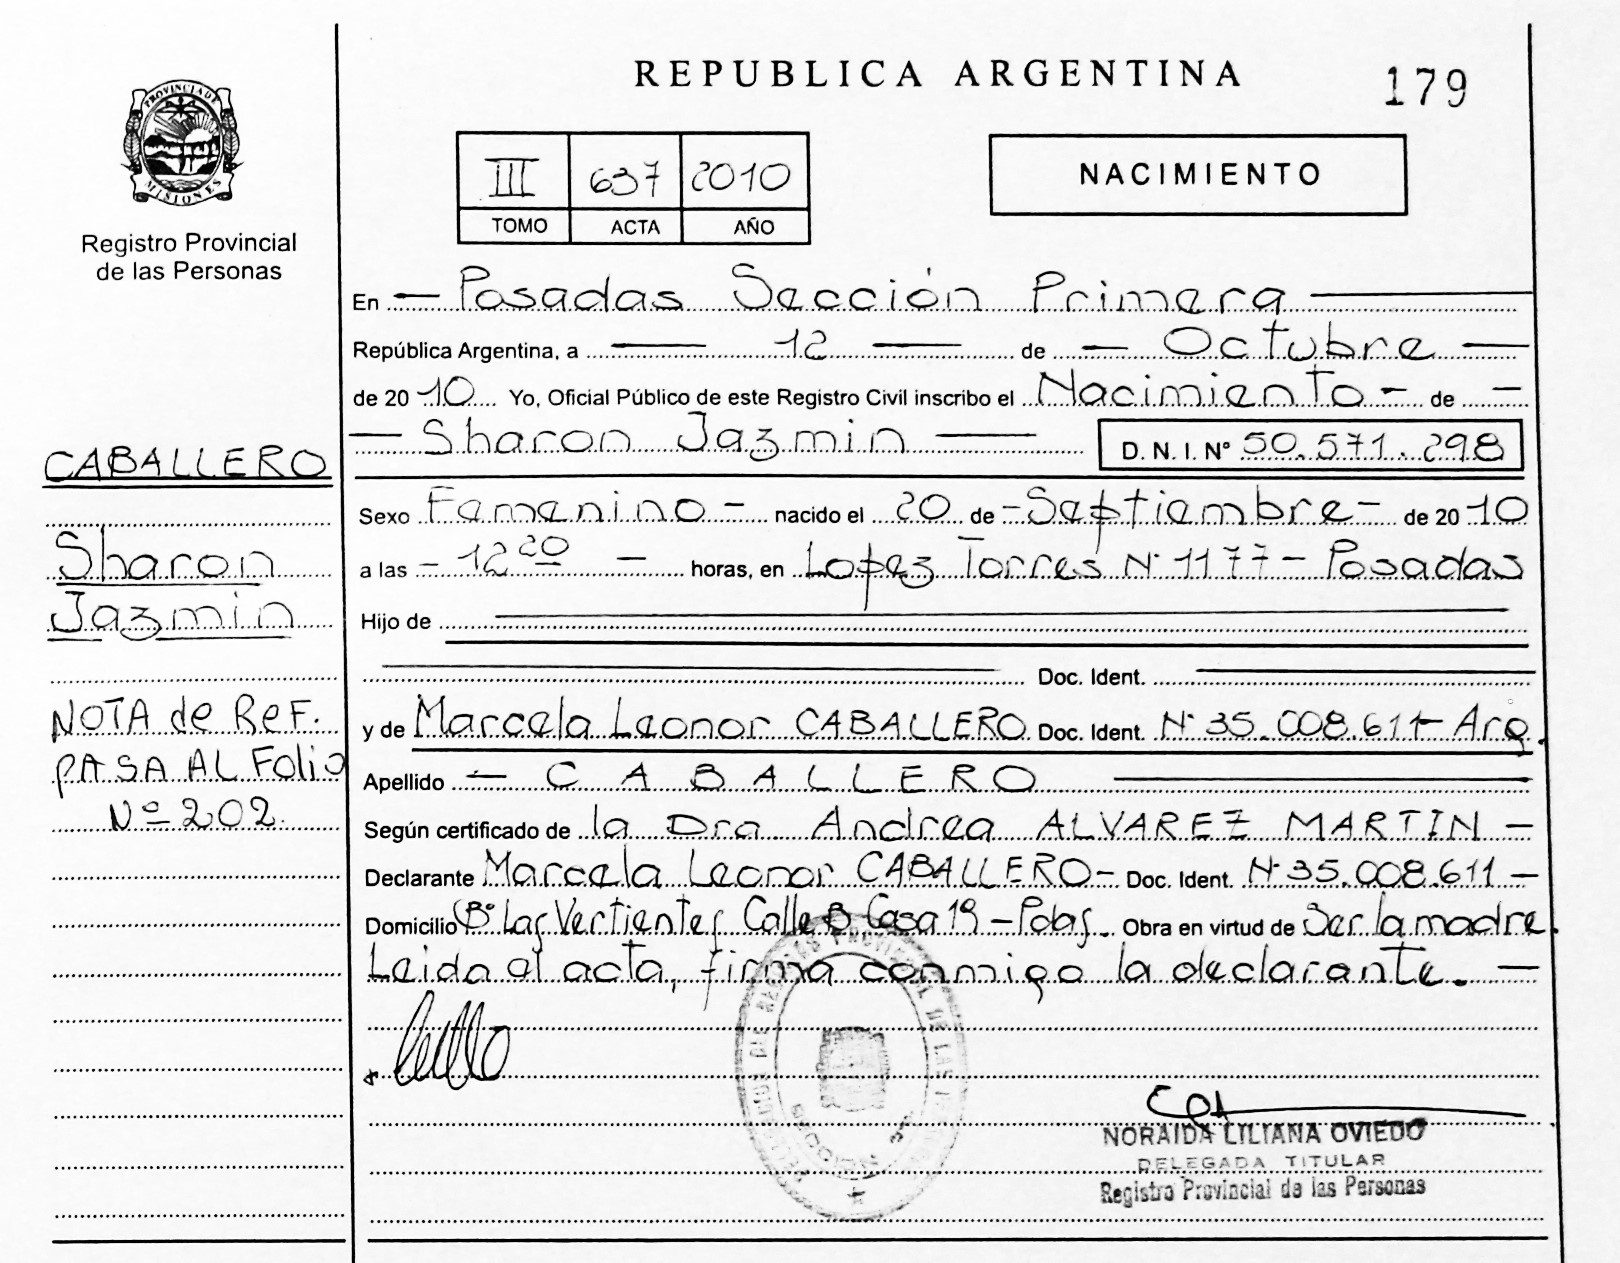 PROVINCIA DE
MISIONES
Registro Provincial
de las Personas
CABALLERO
Sharon
Jazmin
NOTA de ReF.
PASA AL Folio
Nº 202.
REPUBLICA ARGENTINA
179
III 637 2010
TOMO ACTA AÑO
NACIMIENTO
En — Posadas Sección Primera —
República Argentina, a — 12 — de — Octubre —
de 20 10 Yo, Oficial Público de este Registro Civil inscribo el Nacimiento - de -
— Sharon Jazmin — D. N. I. Nº 50.571.298
Sexo Femenino - nacido el 20 de - Septiembre - de 20 10
a las - 12 20 - horas, en Lopez Torres Nº 1177 - Posadas
Hijo de
Doc. Ident.
y de Marcela Leonor CABALLERO Doc. Ident. Nº 35.008.611 - Arg.
Apellido — CABALLERO —
Según certificado de la Dra Andrea ALVAREZ MARTIN -
Declarante Marcela Leonor CABALLERO - Doc. Ident. Nº 35.008.611 -
Domicilio Bº Las Vertientes Calle B Casa 19 - Pdas. Obra en virtud de Ser la madre.
Leida el acta, firma conmigo la declarante. -
NORAIDA LILIANA OVIEDO
DELEGADA TITULAR
Registro Provincial de las Personas